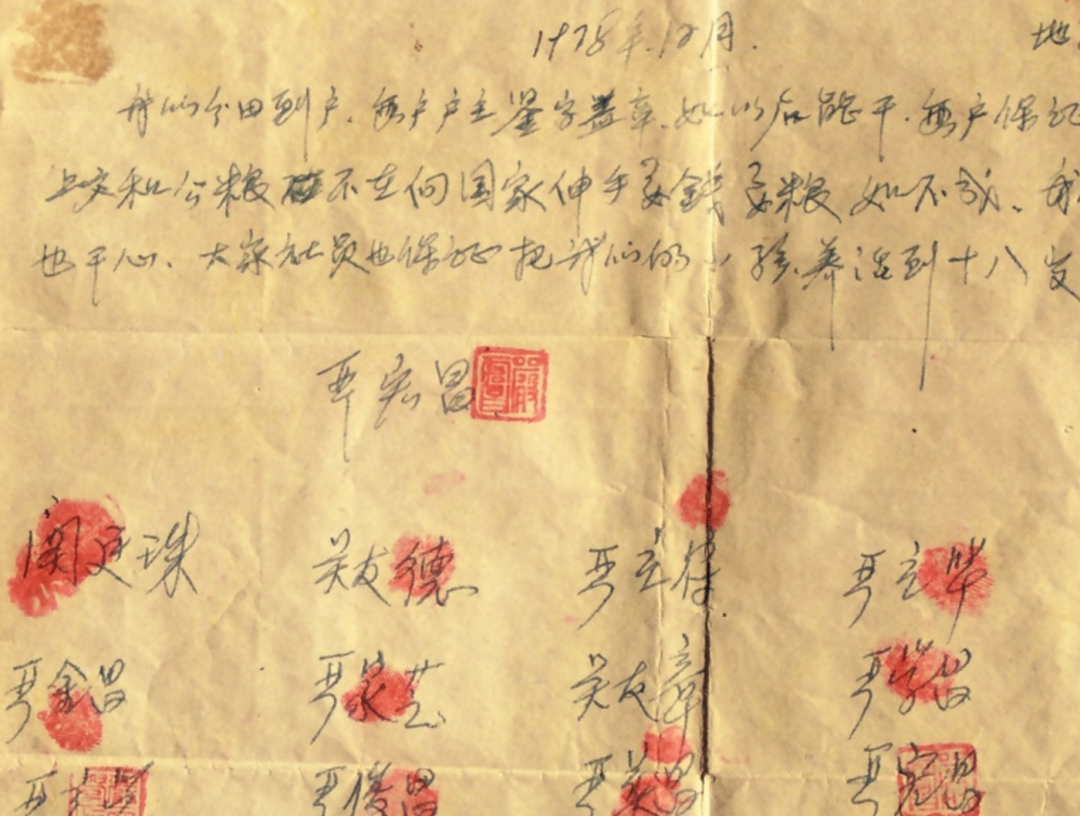 1978年.12月. 地
我们分田到户.每户户主鉴字盖章.如以后能干.每户保证
上交和公粮 不在向国家伸手要钱要粮 如不成、我
也干心、大家社员也保证把我们的小孩养活到十八岁
严宏昌
关廷珠 关友德 严立符 严立华
严金昌 严家芝 关友章 严学昌
严俊昌 严美昌 严宏昌